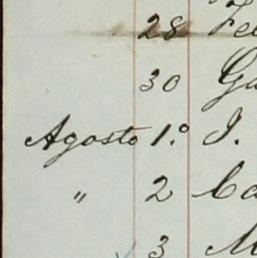 28 Fe
30 Ga
Agosto 1.º I.
" 2 Ca
3 M